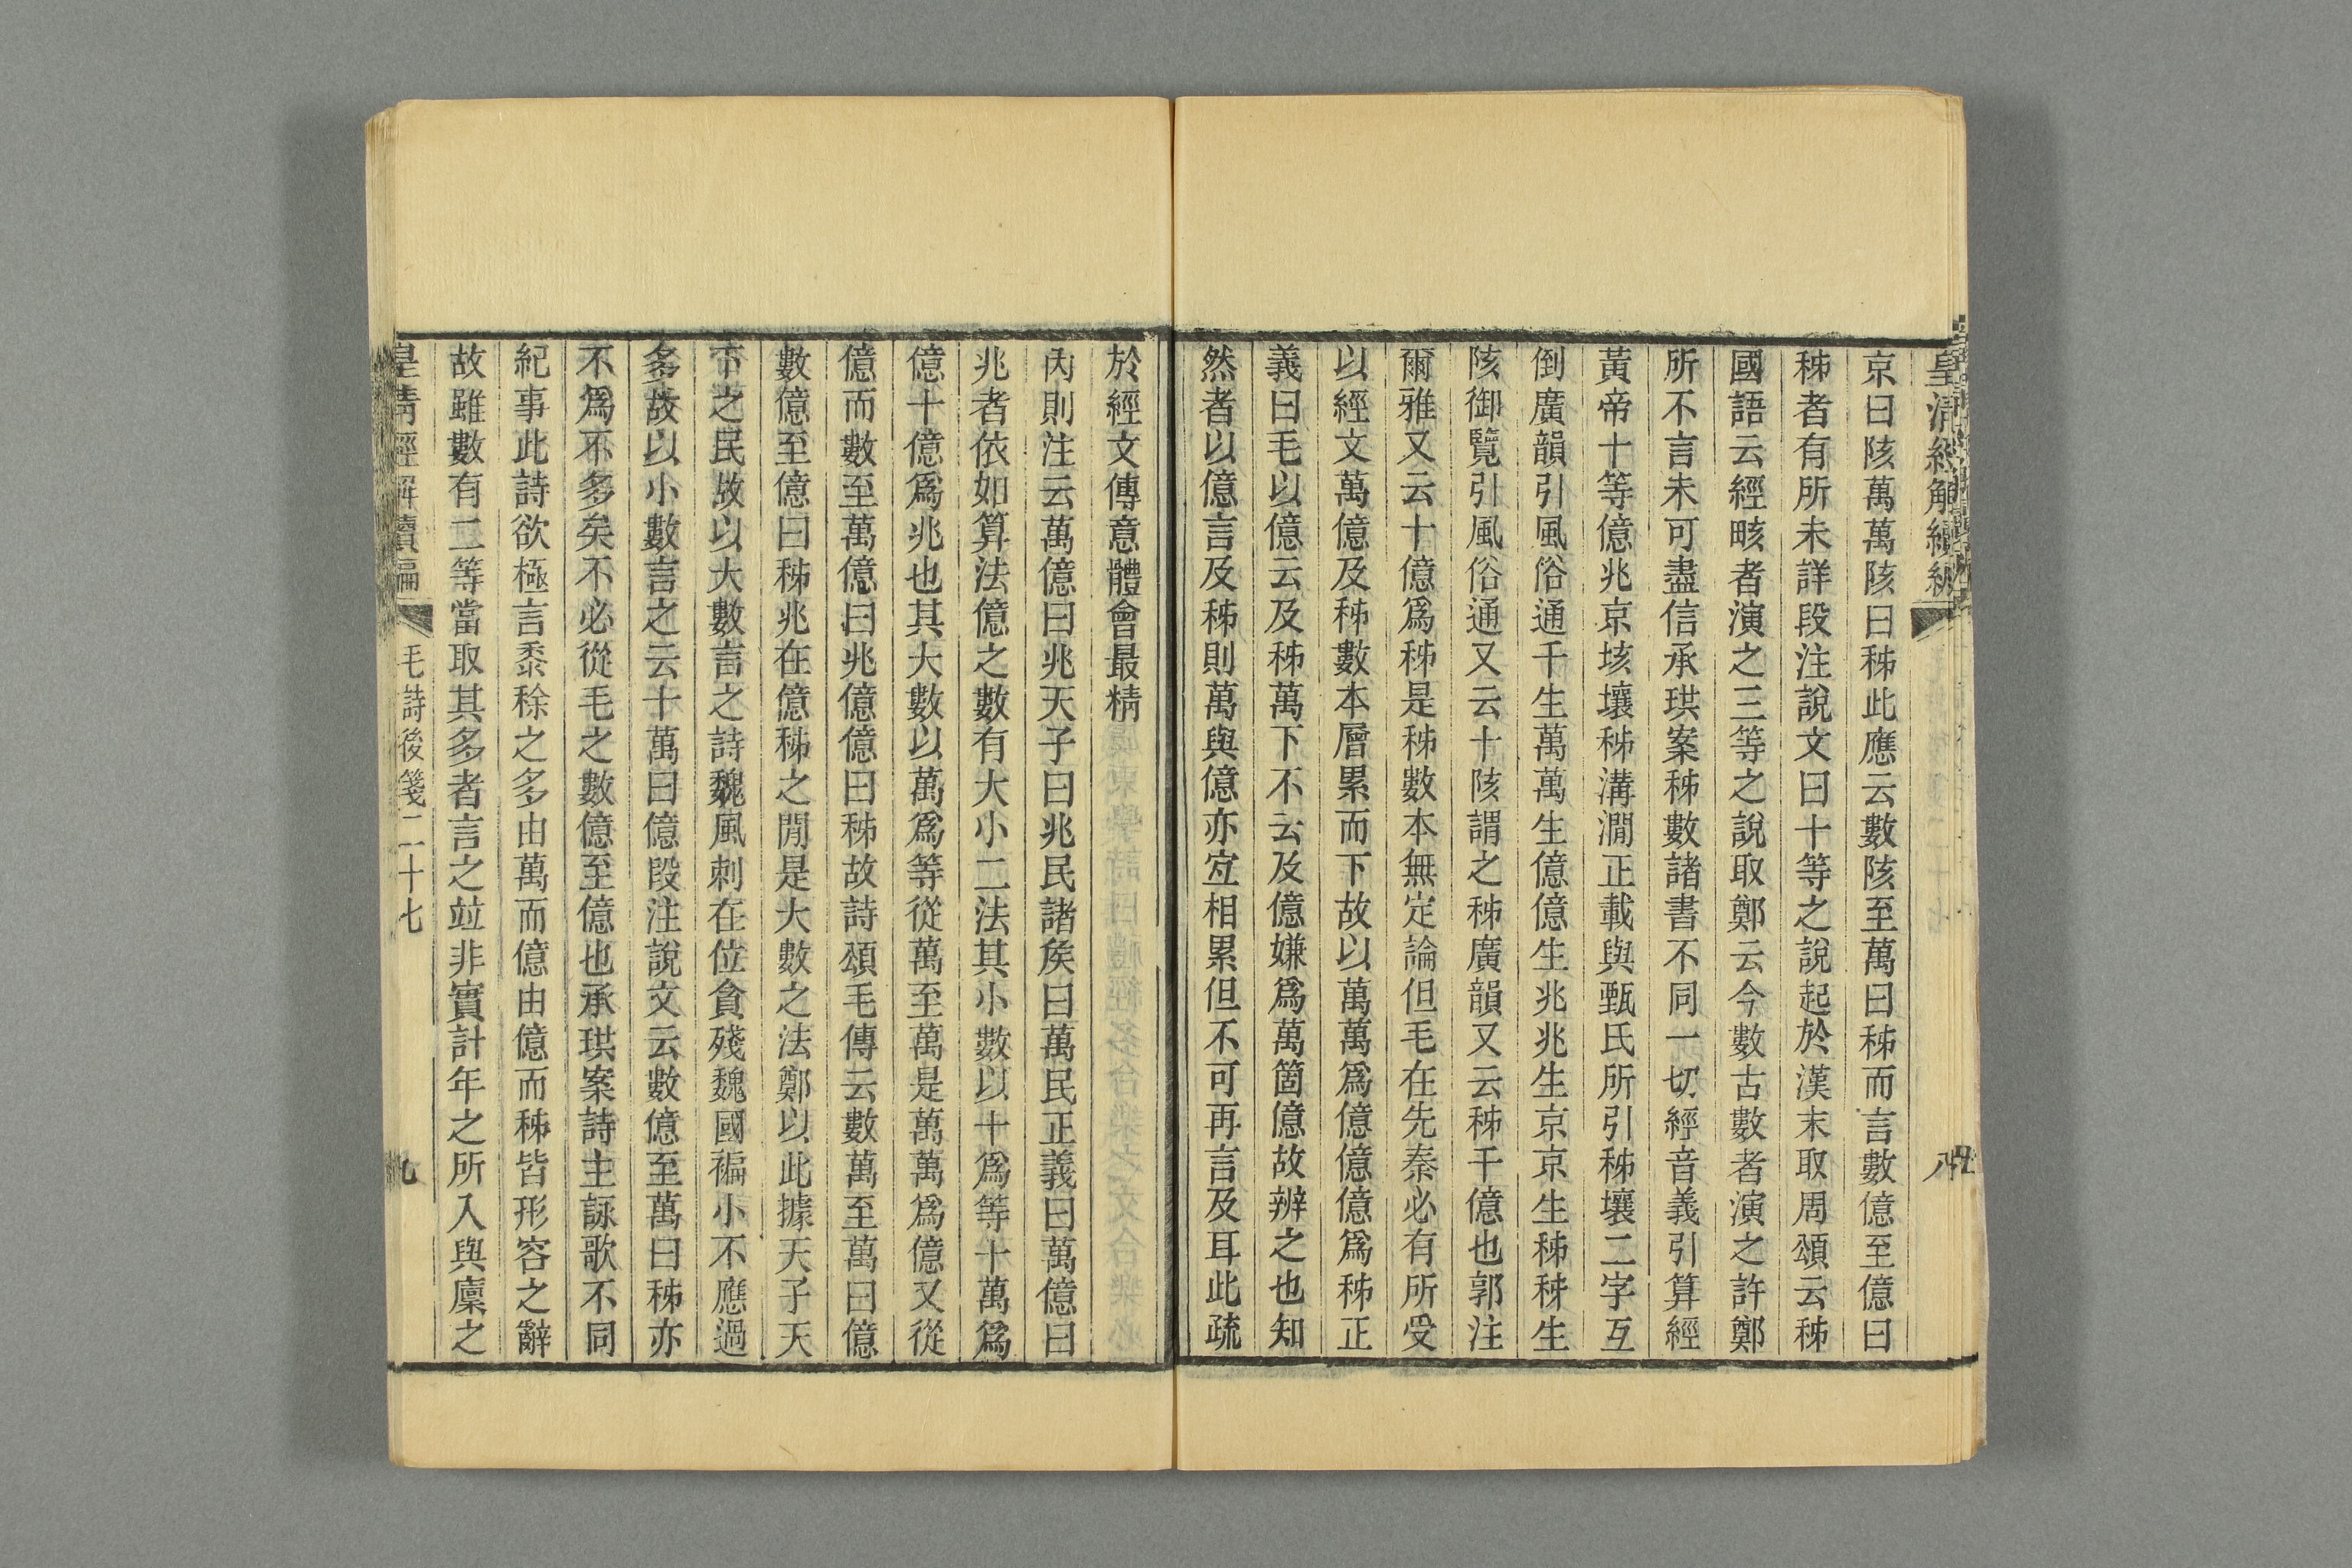 京曰陔萬萬陔曰秭此應云數陔至萬曰秭而言數億至億曰
秭者有所未詳段注說文曰十等之說起於漢末取周頌云秭
國語云經畡者演之三等之說取鄭云今數古數者演之許鄭
所不言未可盡信承珙案秭數諸書不同一切經音義引算經
黃帝十等億兆京垓壤秭溝澗正載與甄氏所引秭壤二字互
倒廣韻引風俗通千生萬萬生億億生兆兆生京京生秭秭生
陔御覽引風俗通又云十陔謂之秭廣韻又云秭千億也郭注
爾雅又云十億爲秭是秭數本無定論但毛在先秦必有所受
以經文萬億及秭數本層累而下故以萬萬爲億億億爲秭正
義曰毛以億云及秭萬下不云及億嫌爲萬萬箇億故辨之也知
然者以億言及秭則萬與億亦宐相累但不可再言及耳此疏
於經文傳意體會最精
內則注云萬億曰兆天子曰兆民諸矦曰萬民正義曰萬億曰
兆者依如算法億之數有大小二法其小數以十爲等十萬爲
億十億爲兆也其大數以萬爲等從萬至萬是萬萬爲億又從
億而數至萬億曰兆億億曰秭故詩頌毛傳云數萬至萬曰億
數億至億曰秭兆在億秭之閒是大數之法鄭以此據天子天
下之民故以大數言之詩魏風刺在位貪殘魏國褊小不應過
多故以小數言之云十萬曰億段注說文云數億至萬曰秭亦
不爲不多矣不必從毛之數億至億也承珙案詩主詠歌不同
紀事此詩欲極言黍稌之多由萬而億由億而秭皆形容之辭
故雖數有二等當取其多者言之竝非實計年之所入與廩之
皇清經解續編
毛詩後箋二十七
九